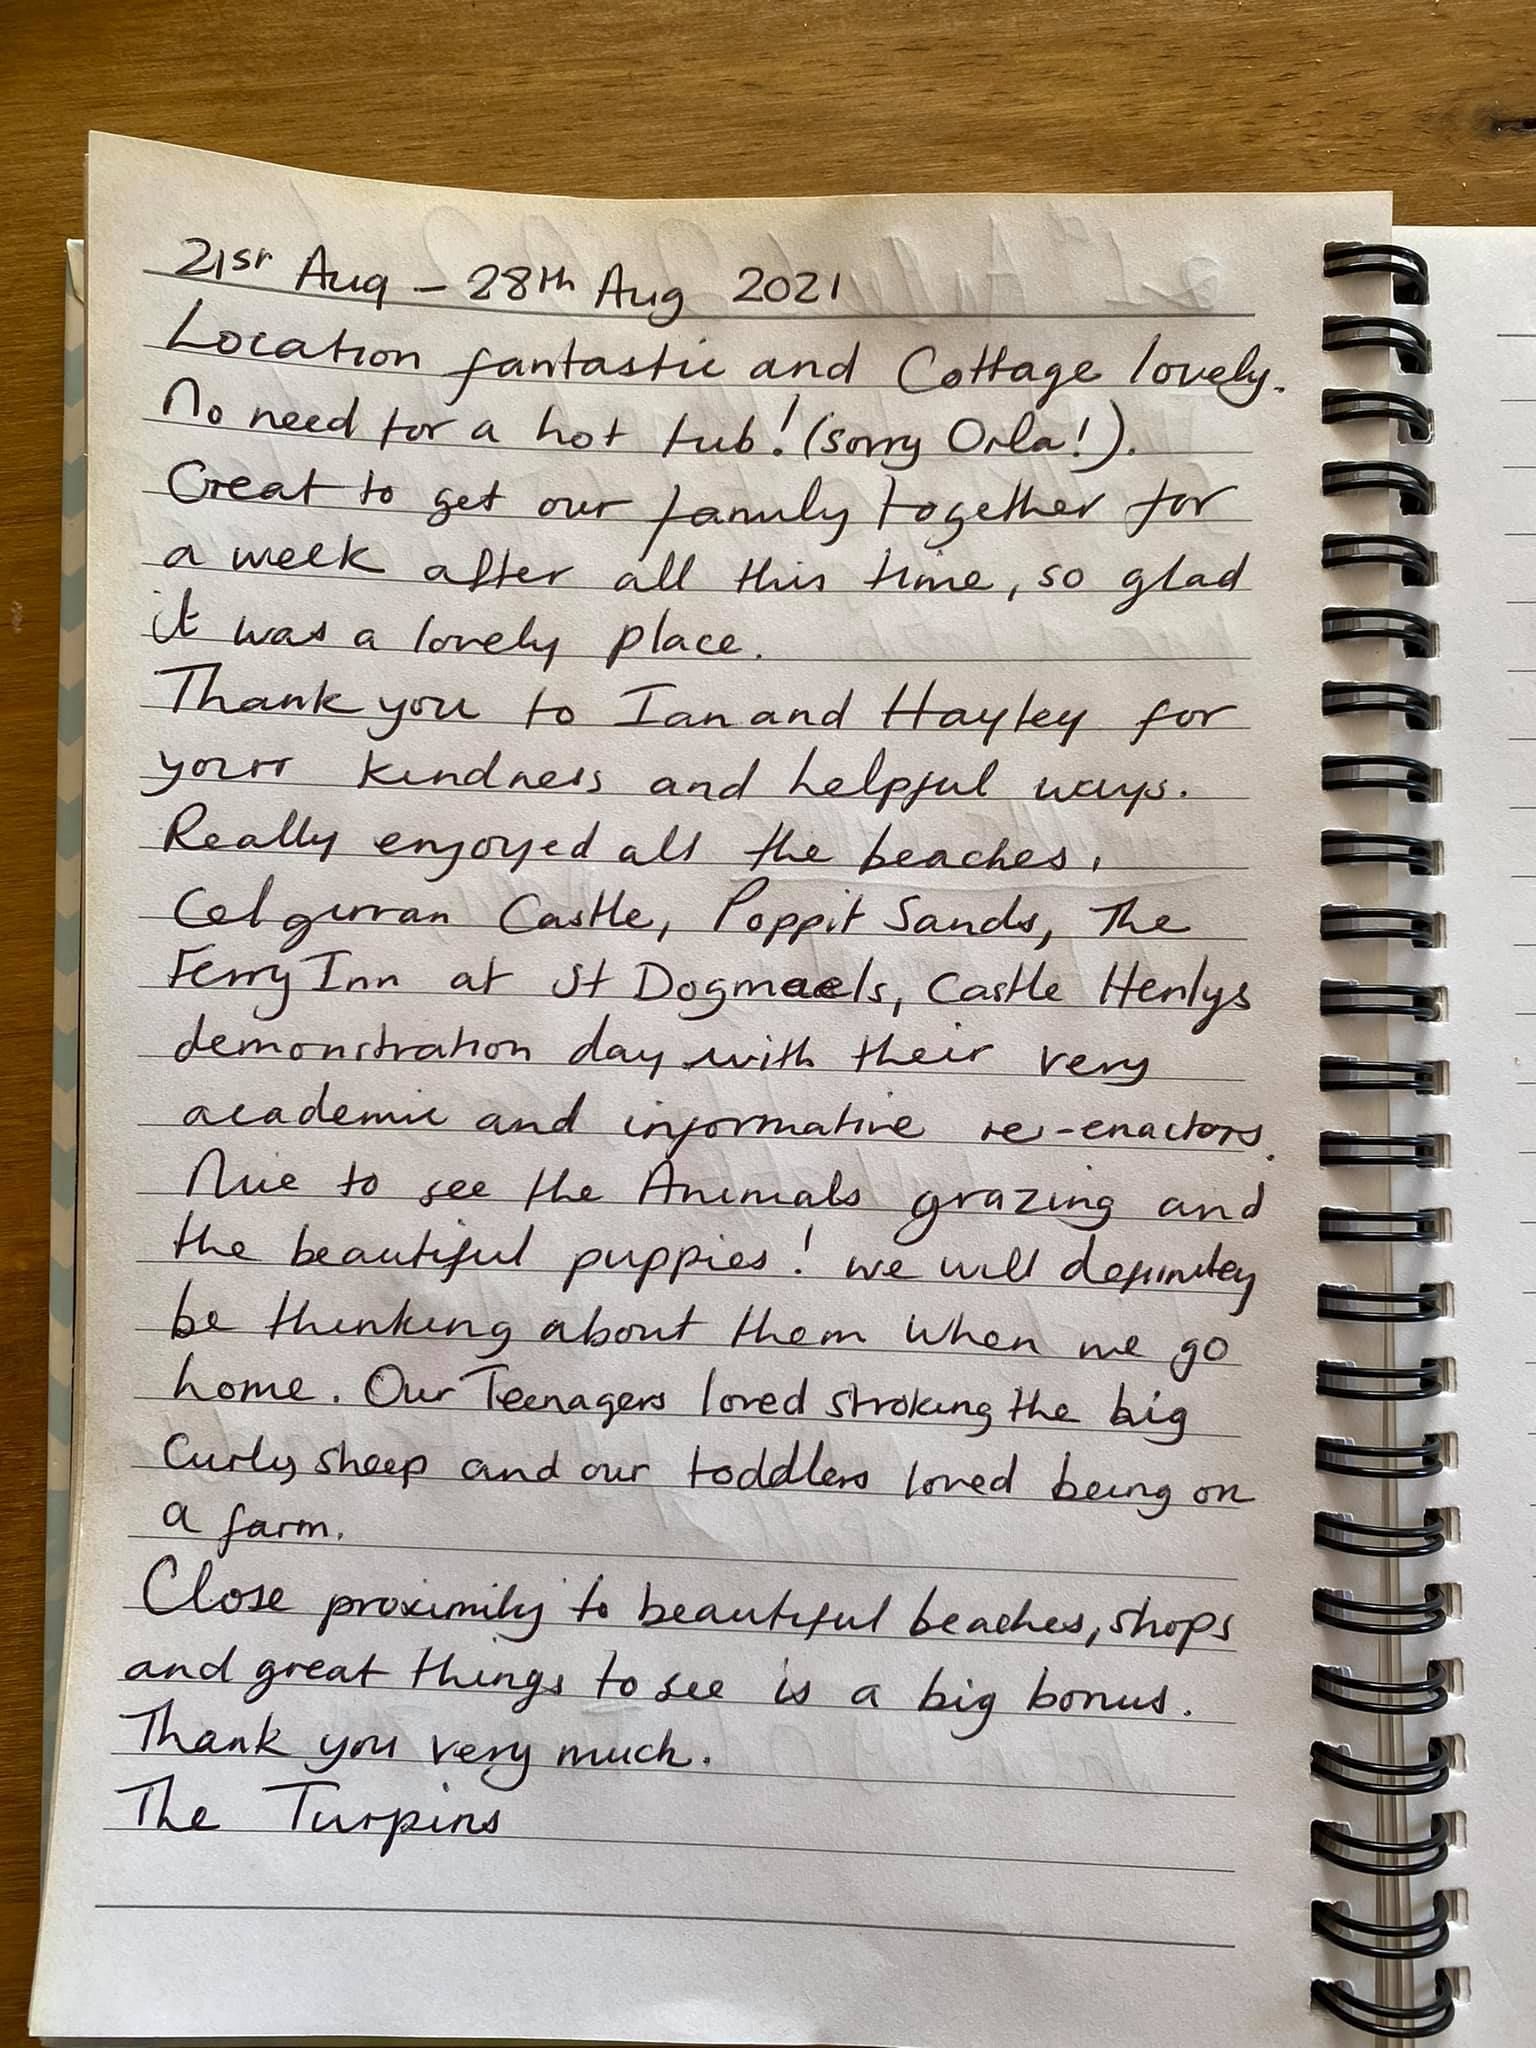 21st Aug - 28th Aug 2021
Location fantastic and Cottage lovely.
No need for a hot tub! (sorry Orla!).
Great to get our family together for
a week after all this time, so glad
it was a lovely place.
Thank you to Ian and Hayley for
your kindness and helpful ways.
Really enjoyed all the beaches,
Celgurran Castle, Poppit Sands, The
Ferry Inn at St Dogmaels, Castle Henlys
demonstration day with their very
academic and informative re-enactors.
Nice to see the Animals grazing and
the beautiful puppies! we will definitey
be thinking about them when we go
home. Our Teenagers loved stroking the big
Curly sheep and our toddlers loved being on
a farm.
Close proximity to beautiful beaches, shops
and great things to see is a big bonus.
Thank you very much.
The Turpins